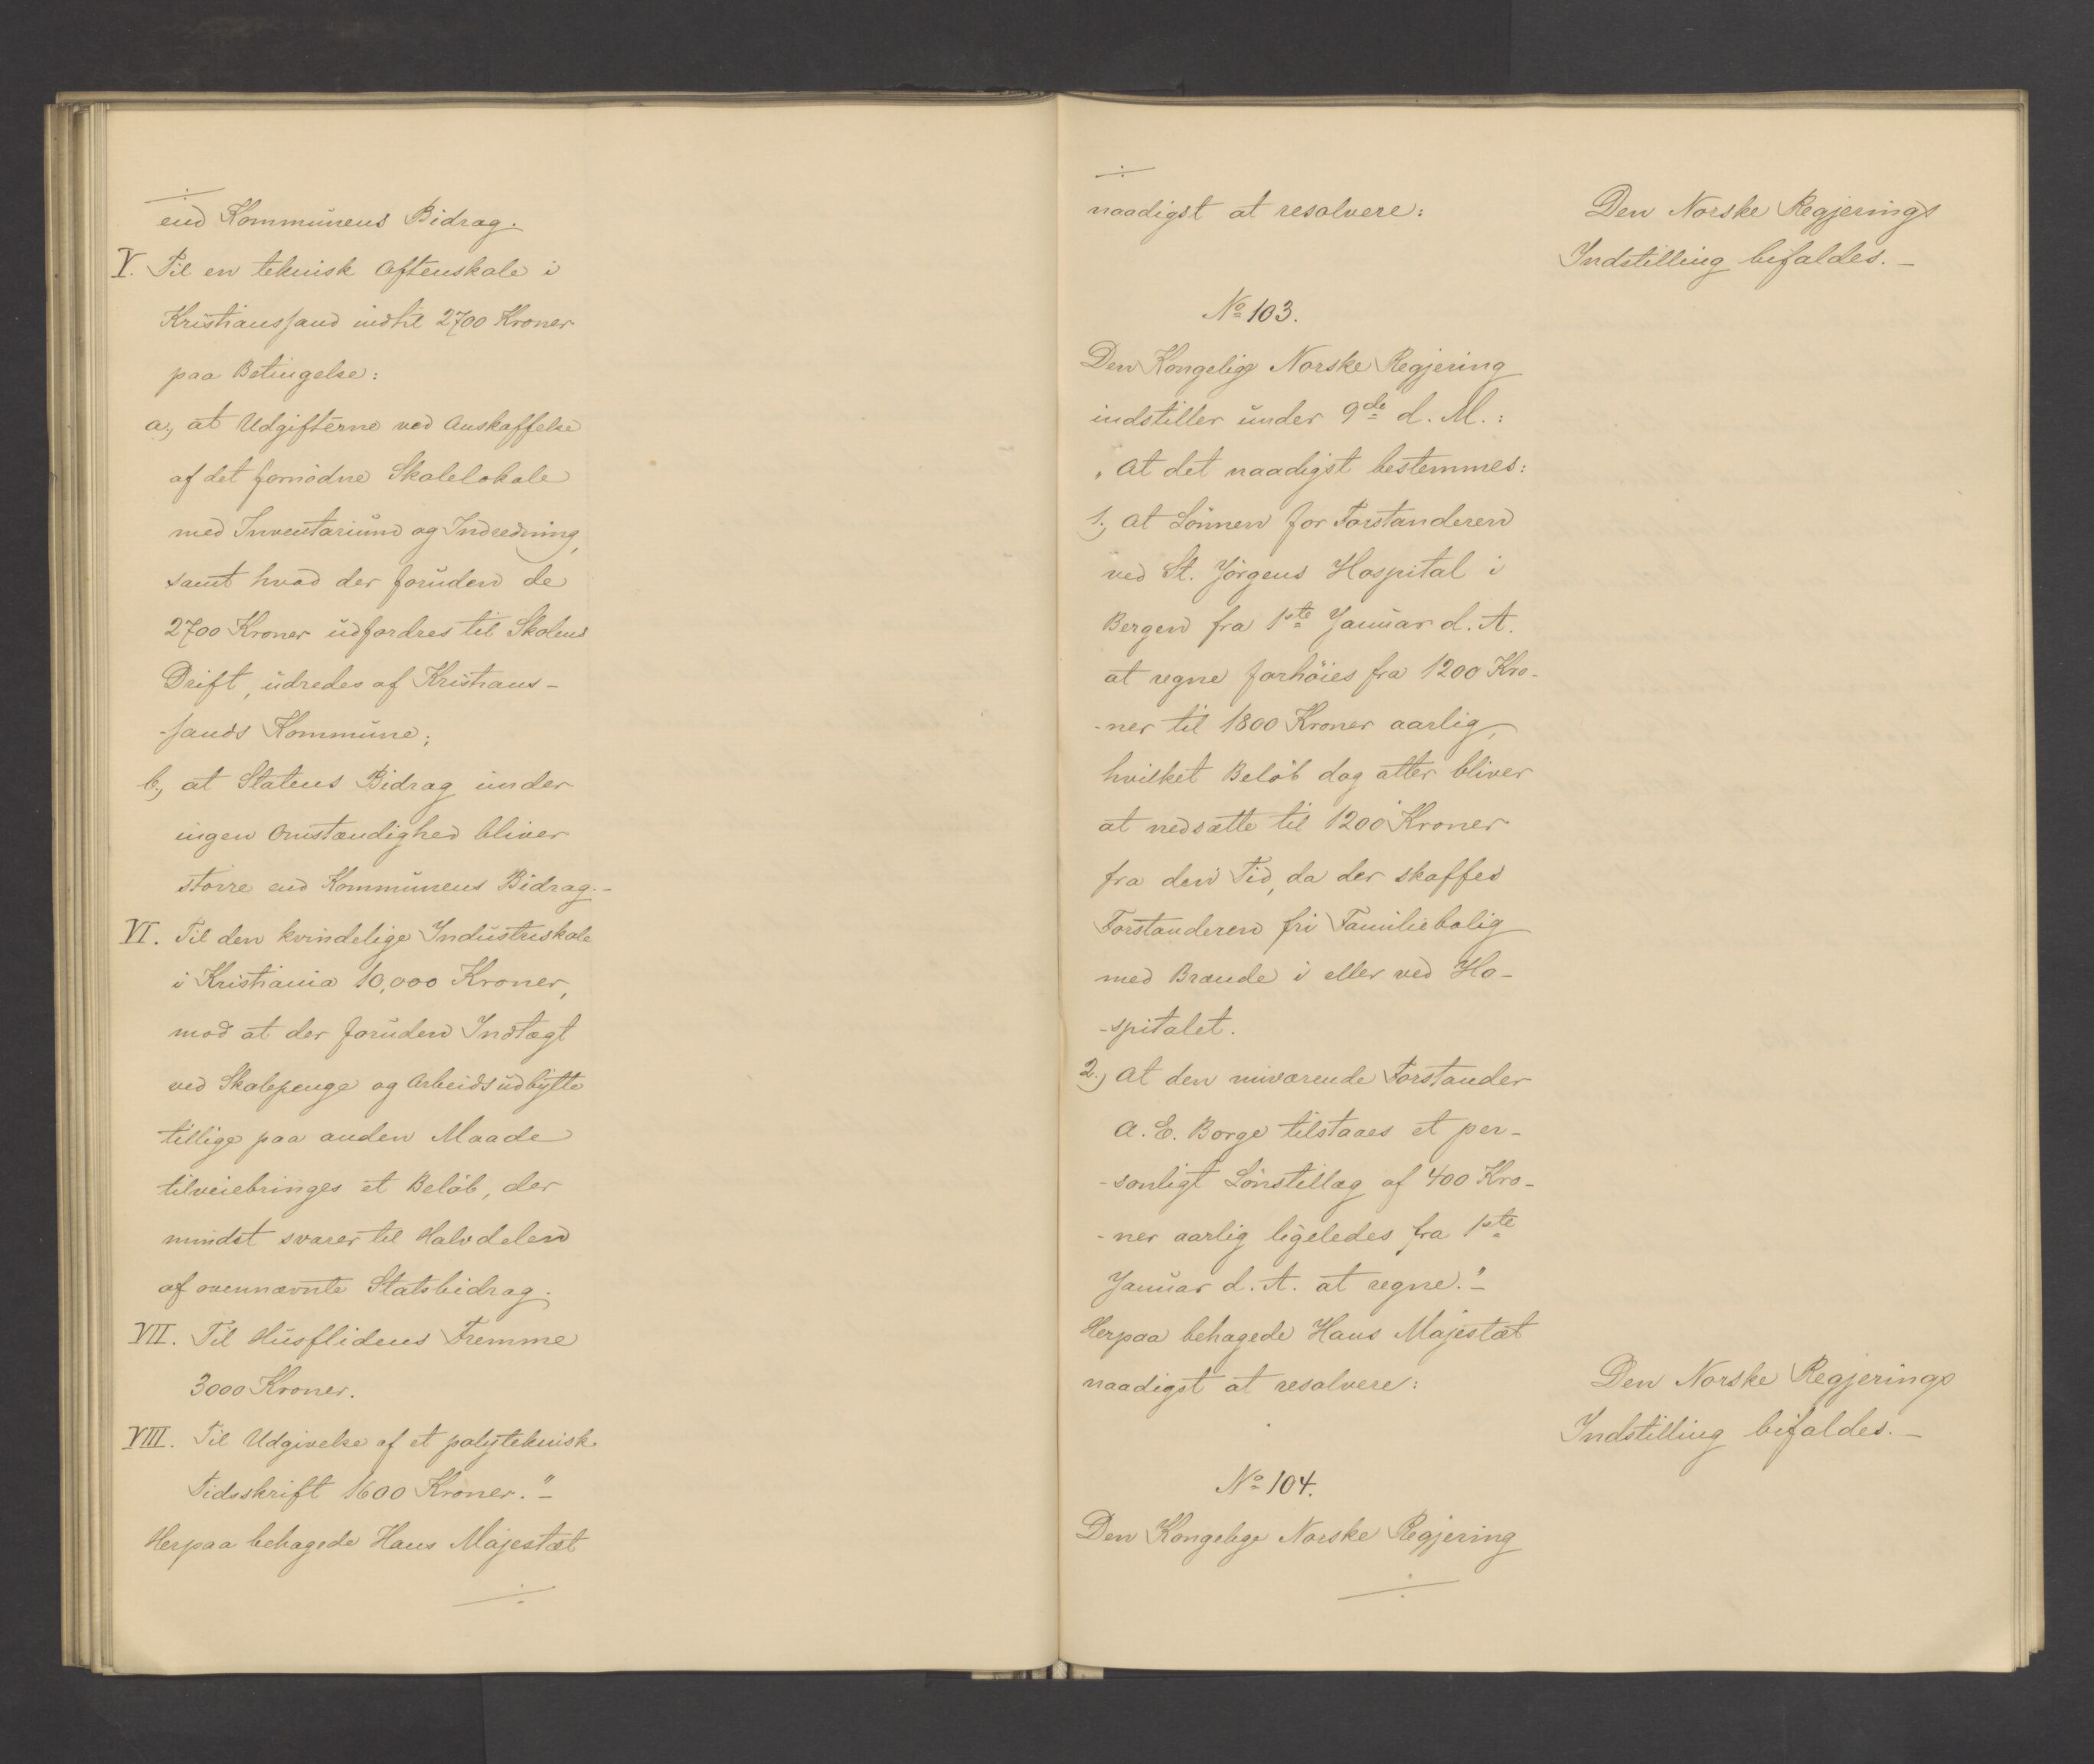 end Kommunens Bidrag.
V. Til en teknisk Aftenskole i
Kristianssand indtil 2700 Kroner
paa Betingelse:
a, at Udgifterne ved Anskaffelse
af det fornødne Skolelokale
med Inventarium og Indredning,
samt hvad der foruden de
2700 Kroner udfordres til Skolens
Drift, udredes af Kristians-
-sands Kommune;
b, at Statens Bidrag under
ingen Omstændighed bliver
større end Kommunens Bidrag.-
VI. Til den kvindelige Industriskole
i Kristiania 10,000 Kroner,
mod at der foruden Indtægt
ved Skolepenge og Arbeidsudbytte
tillige paa anden Maade
tilveiebringes et Beløb, der
mindst svarer til Halvdelen
af ovennævnte Statsbidrag.
VII. Til Husflidens Fremme
3000 Kroner.
VIII. Til Udgivelse af et polyteknisk
Tidsskrift 1600 Kroner."-
Herpaa behagede Hans Majestæt
naadigst at resolvere:
Den Norske Regjerings
Indstilling bifaldes.-
No 103.
Den Kongelige Norske Regjering
indstiller under 9de d. M.:
"At det naadigst bestemmes:
1., At Lønnen for Forstanderen
ved St. Jørgens Hospital i
Bergen fra 1ste Januar d. A.
at regne forhøies fra 1200 Kro-
-ner til 1800 Kroner aarlig,
hvilket Beløb dog atter bliver
at nedsætte til 1200 Kroner
fra den Tid, da der skaffes
Forstanderen fri Familiebolig
med Brænde i eller ved Ho-
-spitalet.
2., At den nuværende Forstander
A. E. Borge tilstaaes et per-
-sonligt Lønstillæg af 400 Kro-
-ner aarlig ligeledes fra 1ste
Januar d. A. at regne."-
Herpaa behagede Hans Majestæt
naadigst at resolvere:
Den Norske Regjerings
Indstilling bifaldes.-
No 104.
Den Kongelige Norske Regjering